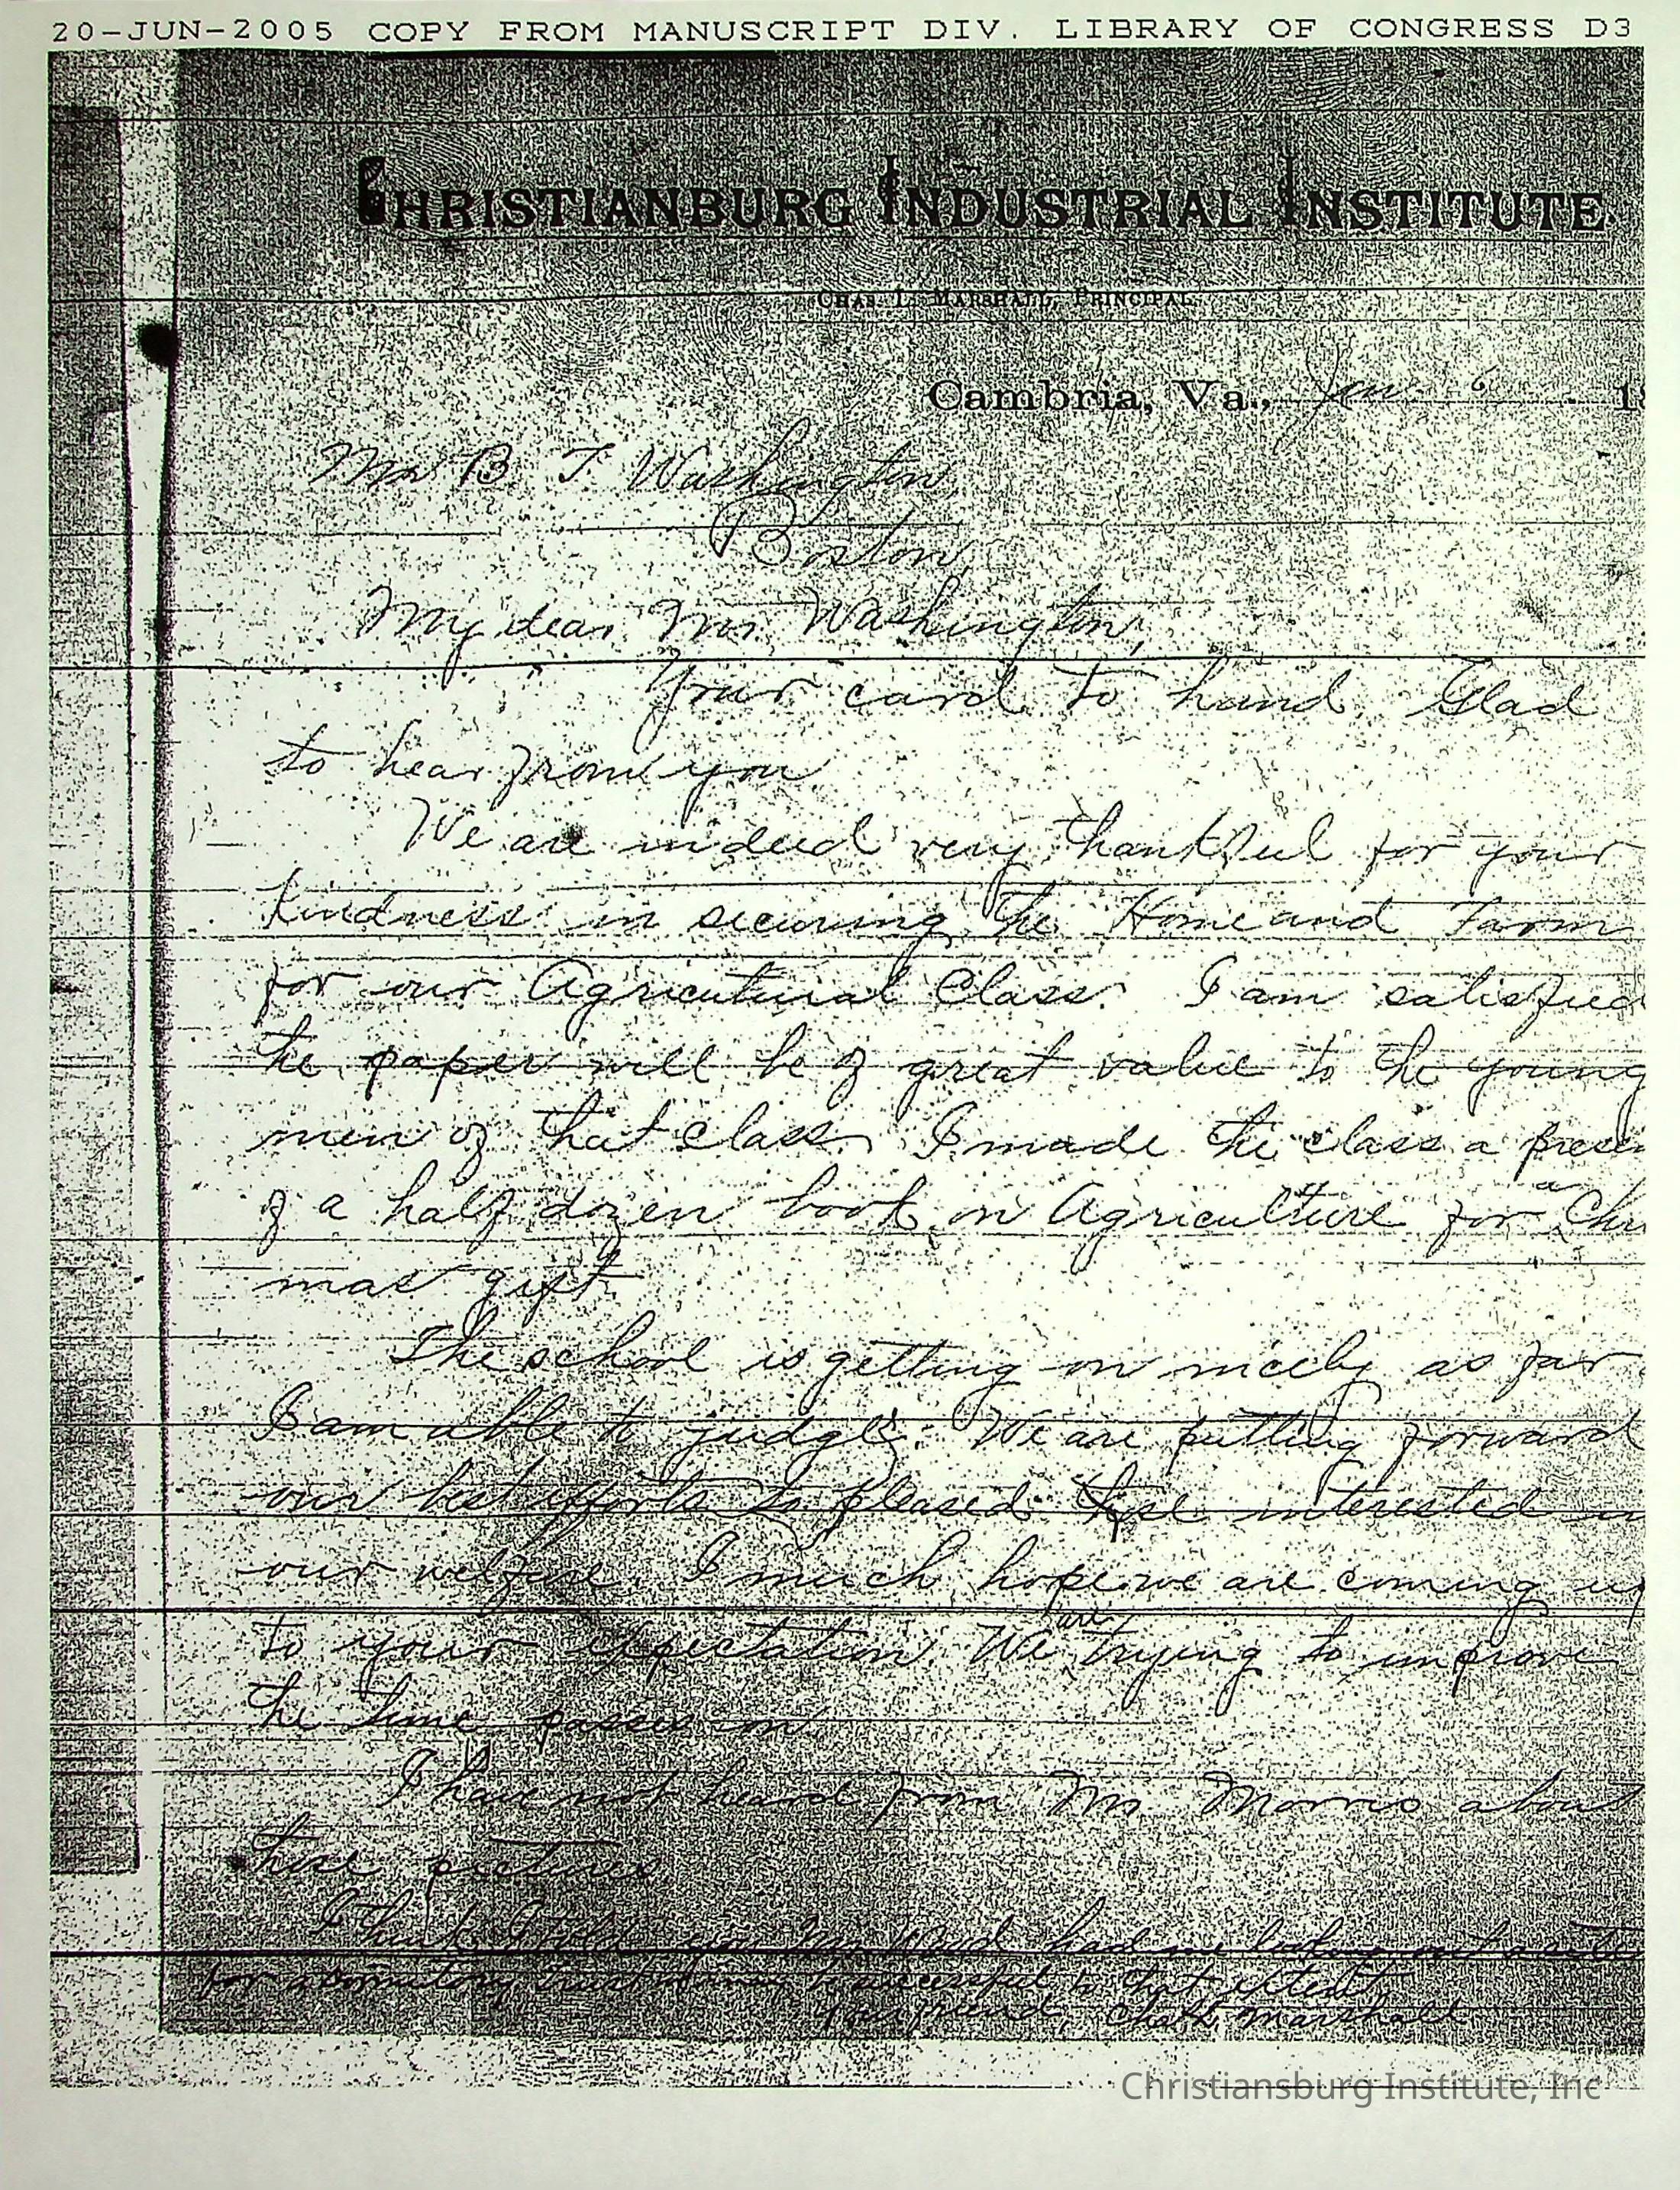 20-JUN-2005 COPY FROM MANUSCRIPT DIV. LIBRARY OF CONGRESS D3
CHRISTIANBURG INDUSTRIAL INSTITUTE.
CHAS. L. MARSHALL, PRINCIPAL.
Cambria, Va., Jan. 6 18
Mr B. T. Washington,
Boston,
My dear Mr. Washington,
Your card to hand. Glad
to hear from you
We are indeed very thankful for your
kindness in securing the Home and Farm
for our Agricultural Class. I am satisfied
the paper will be of great value to the young
men of that class. I made the class a presen
of a half dozen book on Agriculture for a Chri
mas gift.
The school is getting on nicely as far
I am able to judge. We are putting forward
our best efforts to pleased those interested in
our welfare. I much hope we are coming up
to your expectation. We are trying to improve
the time passes on.
I have not heard from Mr Morris abou
those pictures.
I think I told you Mr. had me looking out a
for a Dormitory. Trust I may be successful to that extent.
Your friend, Chas. L. Marshall.
Christiansburg Institute, Inc